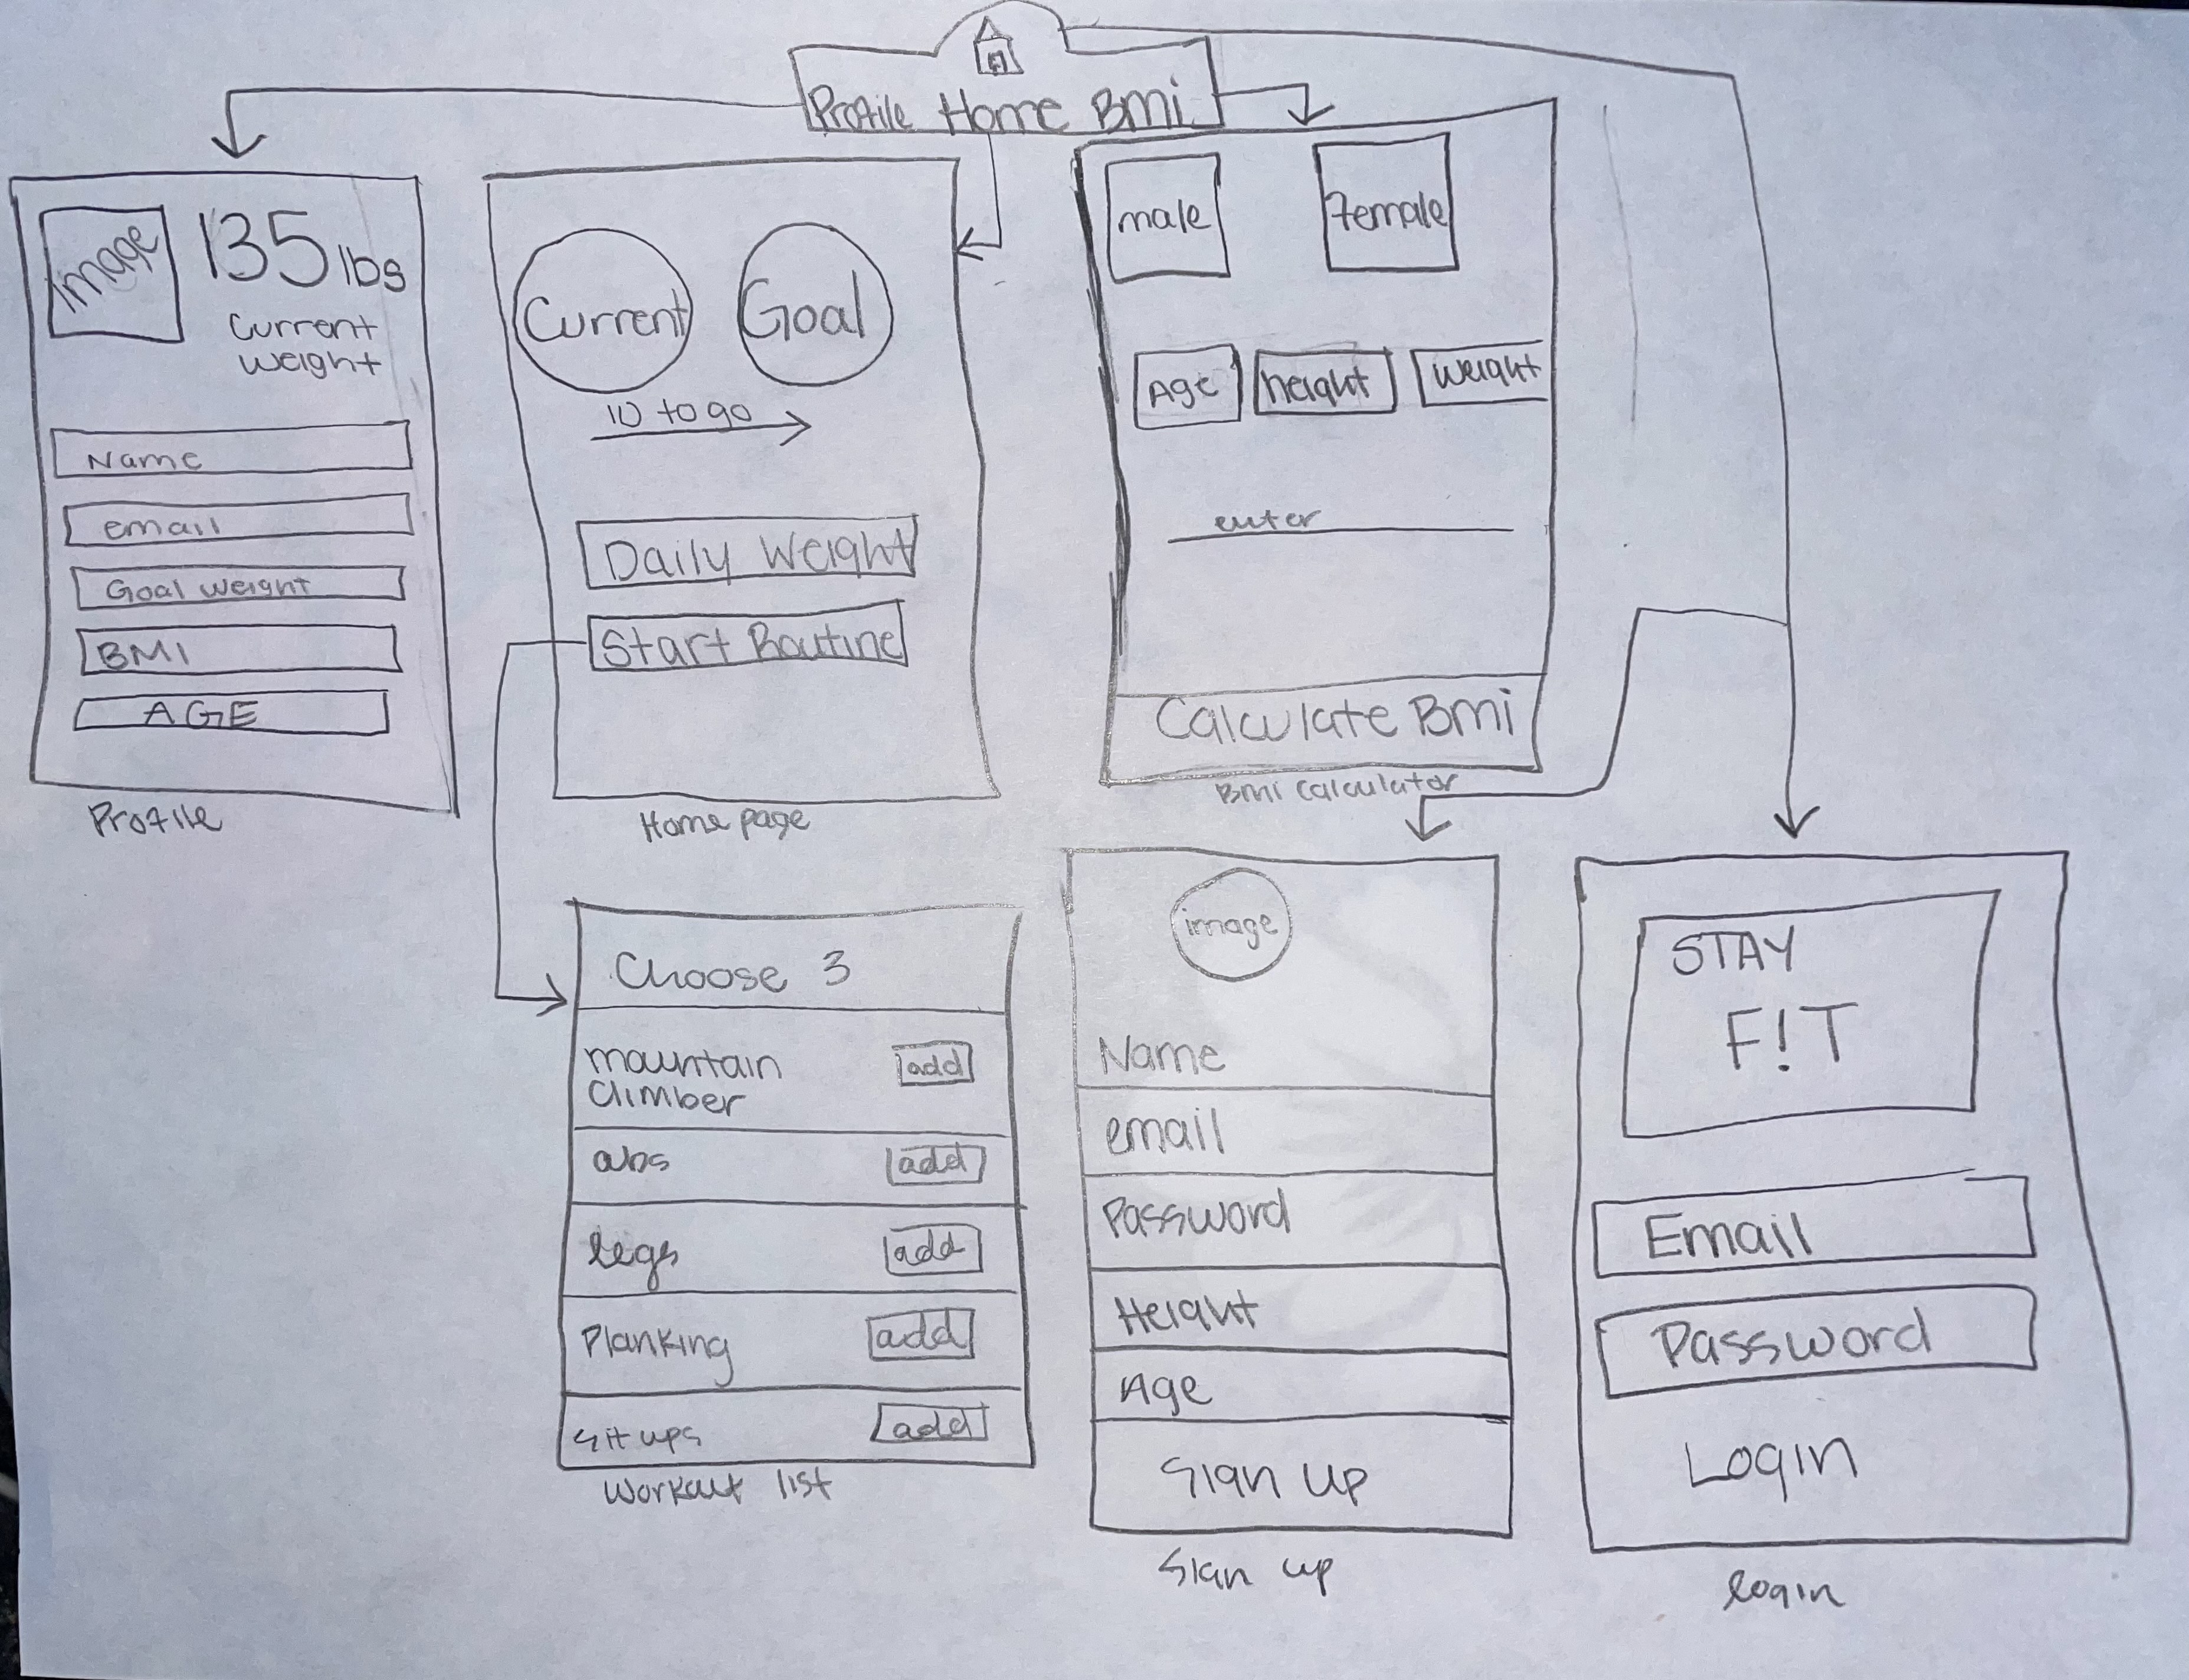 Profile Home Bmi
Image
135 lbs
Current
weight
Name
email
Goal weight
BMI
AGE
Profile
Current
Goal
10 to go
Daily Weight
Start Routine
Home page
male
Female
Age
height
weight
enter
Calculate Bmi
Bmi Calculator
Choose 3
mountain
climber
add
abs
add
legs
add
Planking
add
sit ups
add
Workout list
image
Name
email
Password
Height
Age
Sign up
Sign up
STAY
F!T
Email
Password
Login
login